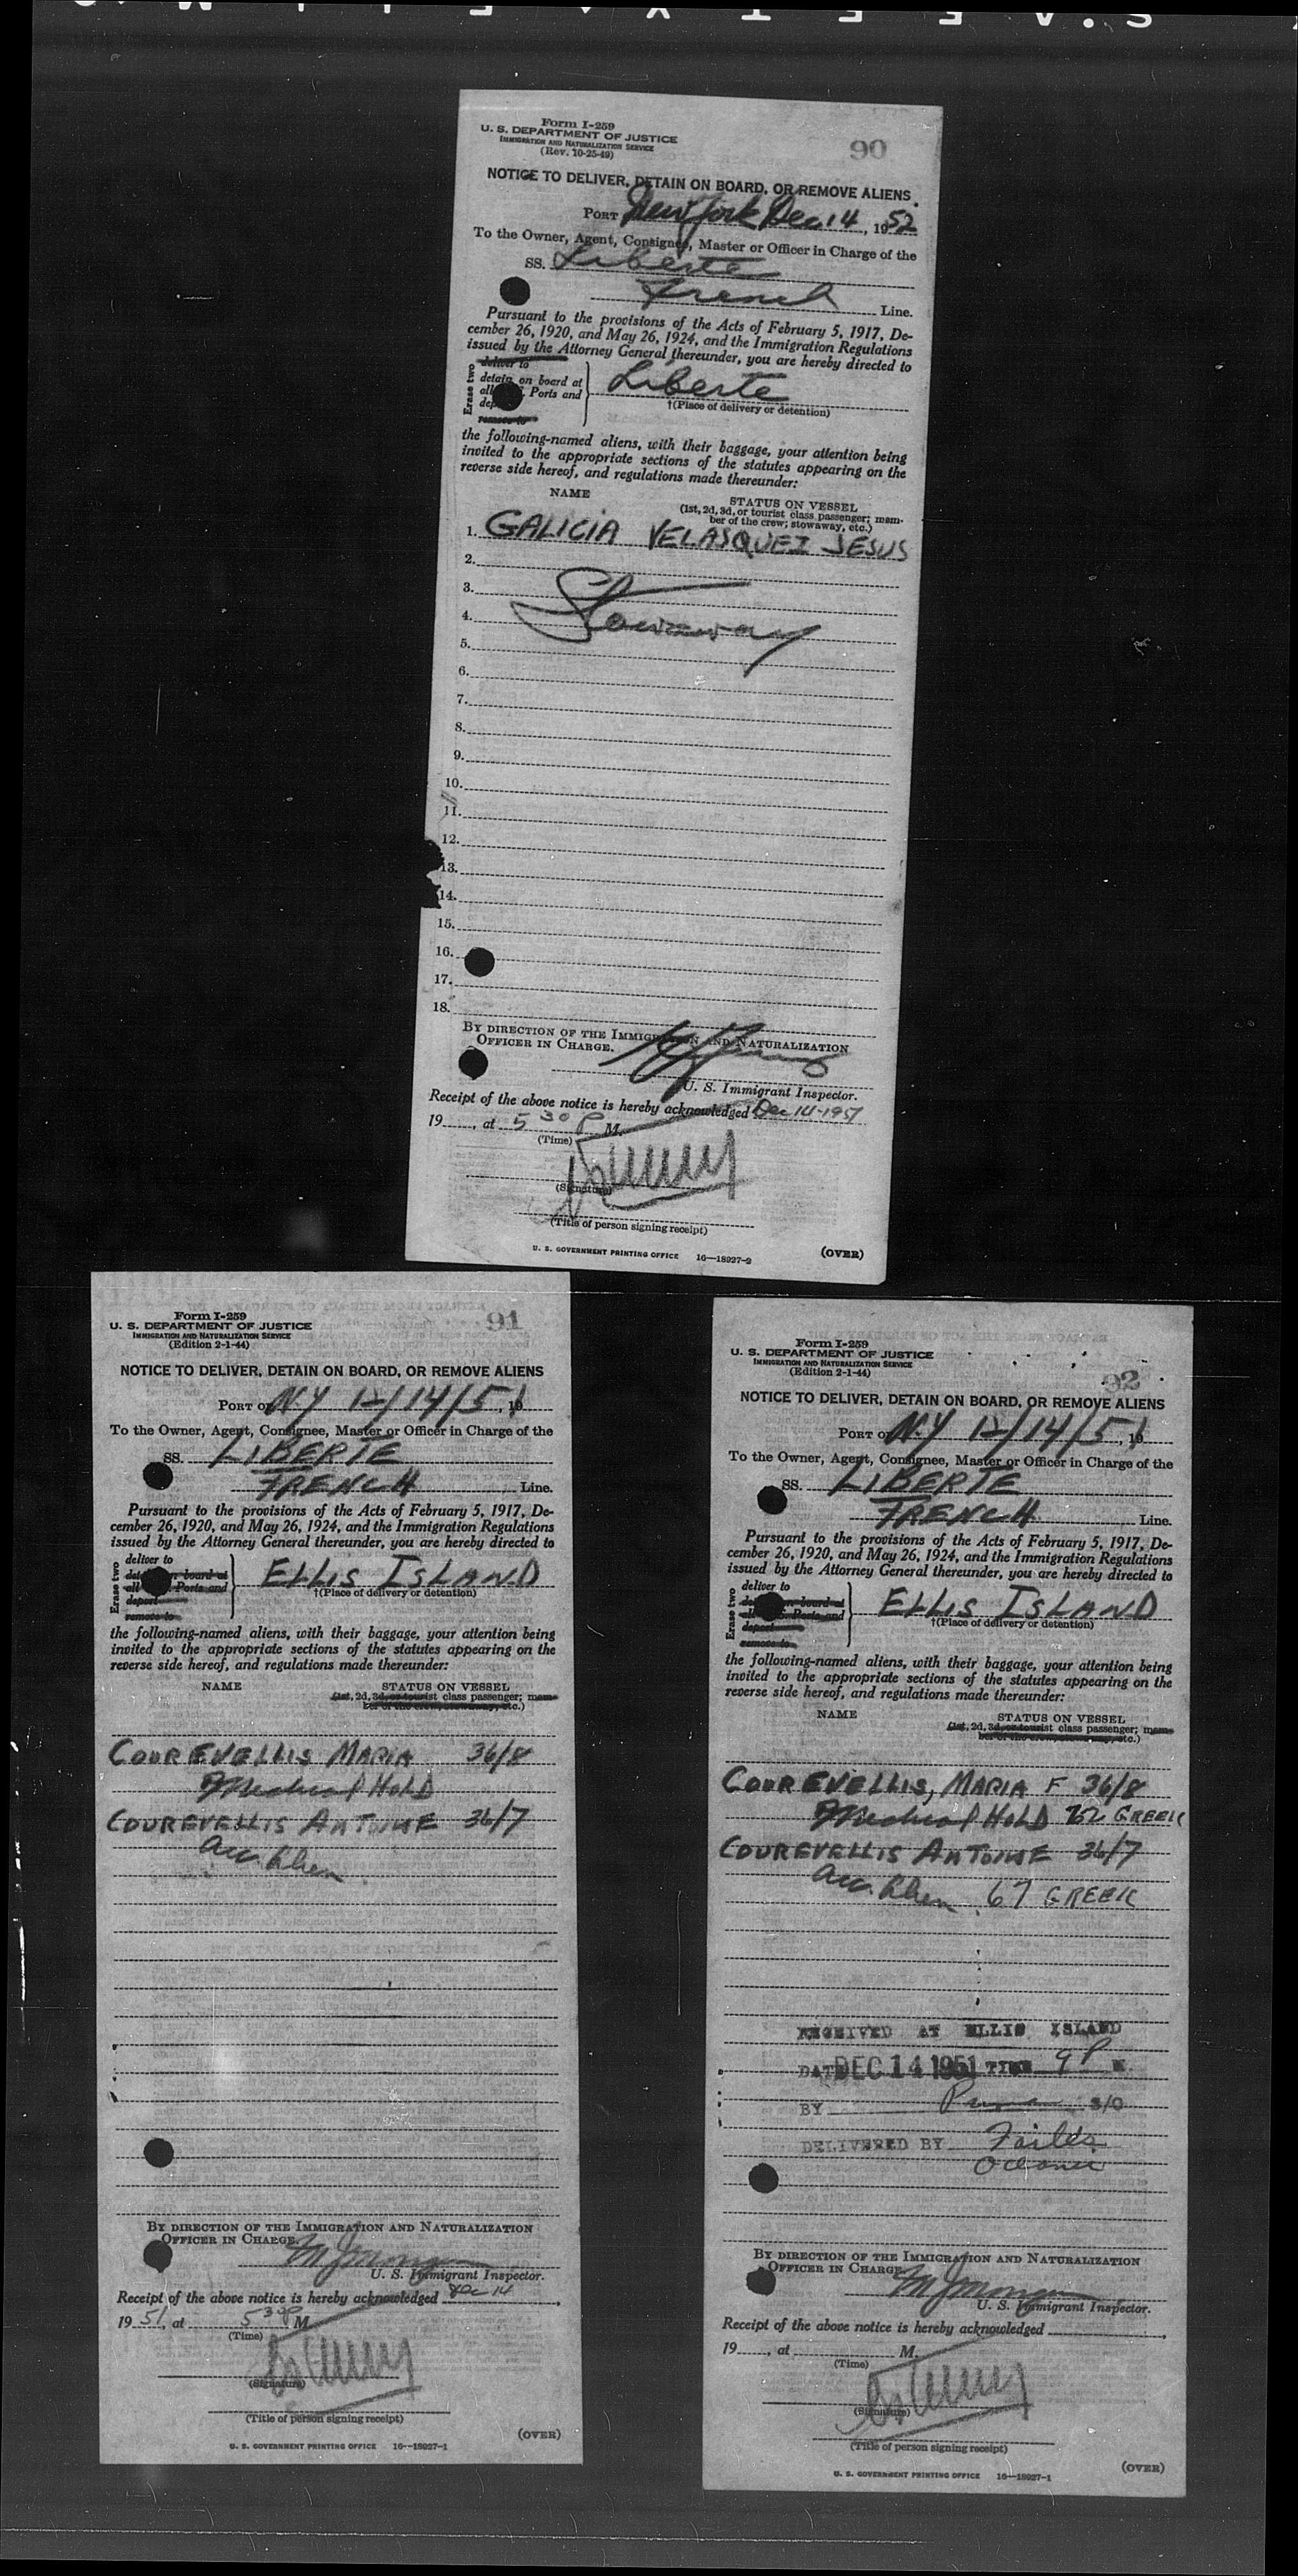 Form I-259
U. S. DEPARTMENT OF JUSTICE
IMMIGRATION AND NATURALIZATION SERVICE
(Rev. 10-25-49)
90
NOTICE TO DELIVER, DETAIN ON BOARD, OR REMOVE ALIENS
PORT New York Dec 14, 1952
To the Owner, Agent, Consignee, Master or Officer in Charge of the
SS. Liberte
French Line.
Pursuant to the provisions of the Acts of February 5, 1917, De-
cember 26, 1920, and May 26, 1924, and the Immigration Regulations
issued by the Attorney General thereunder, you are hereby directed to
Erase two
deliver to
detain on board at
all Ports and
remove to
Liberte
†(Place of delivery or detention)
the following-named aliens, with their baggage, your attention being
invited to the appropriate sections of the statutes appearing on the
reverse side hereof, and regulations made thereunder:
NAME
STATUS ON VESSEL
(1st, 2d, 3d, or tourist class passenger; mem-
ber of the crew; stowaway, etc.)
1. GALICIA VELASQUEZ JESUS
2.
3.
4. Stowaway
5.
6.
7.
8.
9.
10.
11.
12.
13.
14.
15.
16.
17.
18.
BY DIRECTION OF THE IMMIGRATION AND NATURALIZATION
OFFICER IN CHARGE.
U. S. Immigrant Inspector.
Receipt of the above notice is hereby acknowledged Dec 14-1951
19 , at 5 30 P M.
(Time)
(Signature)
(Title of person signing receipt)
U. S. GOVERNMENT PRINTING OFFICE 16—18927-2
(OVER)
Form I-259
U. S. DEPARTMENT OF JUSTICE
IMMIGRATION AND NATURALIZATION SERVICE
(Edition 2-1-44)
91
NOTICE TO DELIVER, DETAIN ON BOARD, OR REMOVE ALIENS
PORT OF NY 12/14/51, 19
To the Owner, Agent, Consignee, Master or Officer in Charge of the
SS. LIBERTE
FRENCH Line.
Pursuant to the provisions of the Acts of February 5, 1917, De-
cember 26, 1920, and May 26, 1924, and the Immigration Regulations
issued by the Attorney General thereunder, you are hereby directed to
Erase two
deliver to
detain on board at
all Ports and
deport
remove to
ELLIS ISLAND
†(Place of delivery or detention)
the following-named aliens, with their baggage, your attention being
invited to the appropriate sections of the statutes appearing on the
reverse side hereof, and regulations made thereunder:
NAME
STATUS ON VESSEL
(1st, 2d, 3d, or tourist class passenger; mem-
ber of the crew, stowaway, etc.)
COUREVELLIS MARIA 36/8
Medical HOLD
COUREVELLIS ANTOINE 36/7
Acc. Alien
BY DIRECTION OF THE IMMIGRATION AND NATURALIZATION
OFFICER IN CHARGE.
U. S. Immigrant Inspector.
Receipt of the above notice is hereby acknowledged Dec 14
19 51, at 5 30 P M
(Time)
(Signature)
(Title of person signing receipt)
(OVER)
U. S. GOVERNMENT PRINTING OFFICE 16—18927-1
Form I-259
U. S. DEPARTMENT OF JUSTICE
IMMIGRATION AND NATURALIZATION SERVICE
(Edition 2-1-44)
92
NOTICE TO DELIVER, DETAIN ON BOARD, OR REMOVE ALIENS
PORT OF N.Y 12/14/51, 19
To the Owner, Agent, Consignee, Master or Officer in Charge of the
SS. LIBERTE
FRENCH Line.
Pursuant to the provisions of the Acts of February 5, 1917, De-
cember 26, 1920, and May 26, 1924, and the Immigration Regulations
issued by the Attorney General thereunder, you are hereby directed to
Erase two
deliver to
detain on board at
all Ports and
deport
remove to
ELLIS ISLAND
†(Place of delivery or detention)
the following-named aliens, with their baggage, your attention being
invited to the appropriate sections of the statutes appearing on the
reverse side hereof, and regulations made thereunder:
NAME
STATUS ON VESSEL
(1st, 2d, 3d, or tourist class passenger; mem-
ber of the crew, stowaway, etc.)
COUREVELLIS, MARIA F 36/8
Medical HOLD 72 GREEK
COUREVELLIS ANTOINE 36/7
Acc. Alien 67 GREEK
RECEIVED AT ELLIS ISLAND
DATE DEC 14 1951 TIME 9 P M.
BY S/O
DELIVERED BY
BY DIRECTION OF THE IMMIGRATION AND NATURALIZATION
OFFICER IN CHARGE
U. S. Immigrant Inspector.
Receipt of the above notice is hereby acknowledged
19 , at M.
(Time)
(Signature)
(Title of person signing receipt)
(OVER)
U. S. GOVERNMENT PRINTING OFFICE 16—18927-1